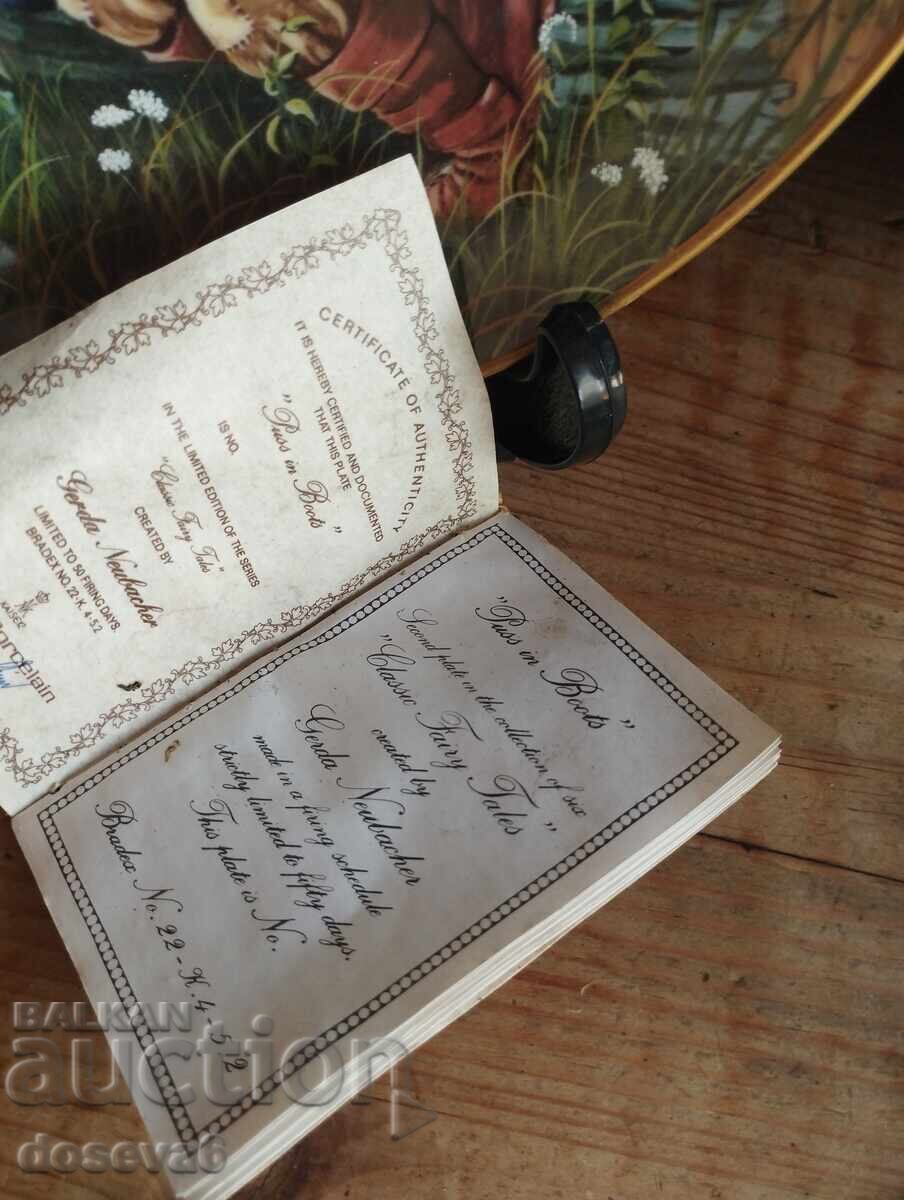 CERTIFICATE OF AUTHENTICITY
IT IS HEREBY CERTIFIED AND DOCUMENTED
THAT THIS PLATE
"Puss in Boots"
IS NO.
IN THE LIMITED EDITION OF THE SERIES
"Classic Fairy Tales"
CREATED BY
Gerda Neubacher
LIMITED TO 50 FIRING DAYS.
BRADEX NO. 22-K. 4-5.2
KAISER
"Puss in Boots"
Second plate in the collection of six
"Classic Fairy Tales"
created by
Gerda Neubacher
made in a firing schedule
strictly limited to fifty days.
This plate is No.
Bradex No. 22-K. 4-5.2
BALKAN
auction
doseva6